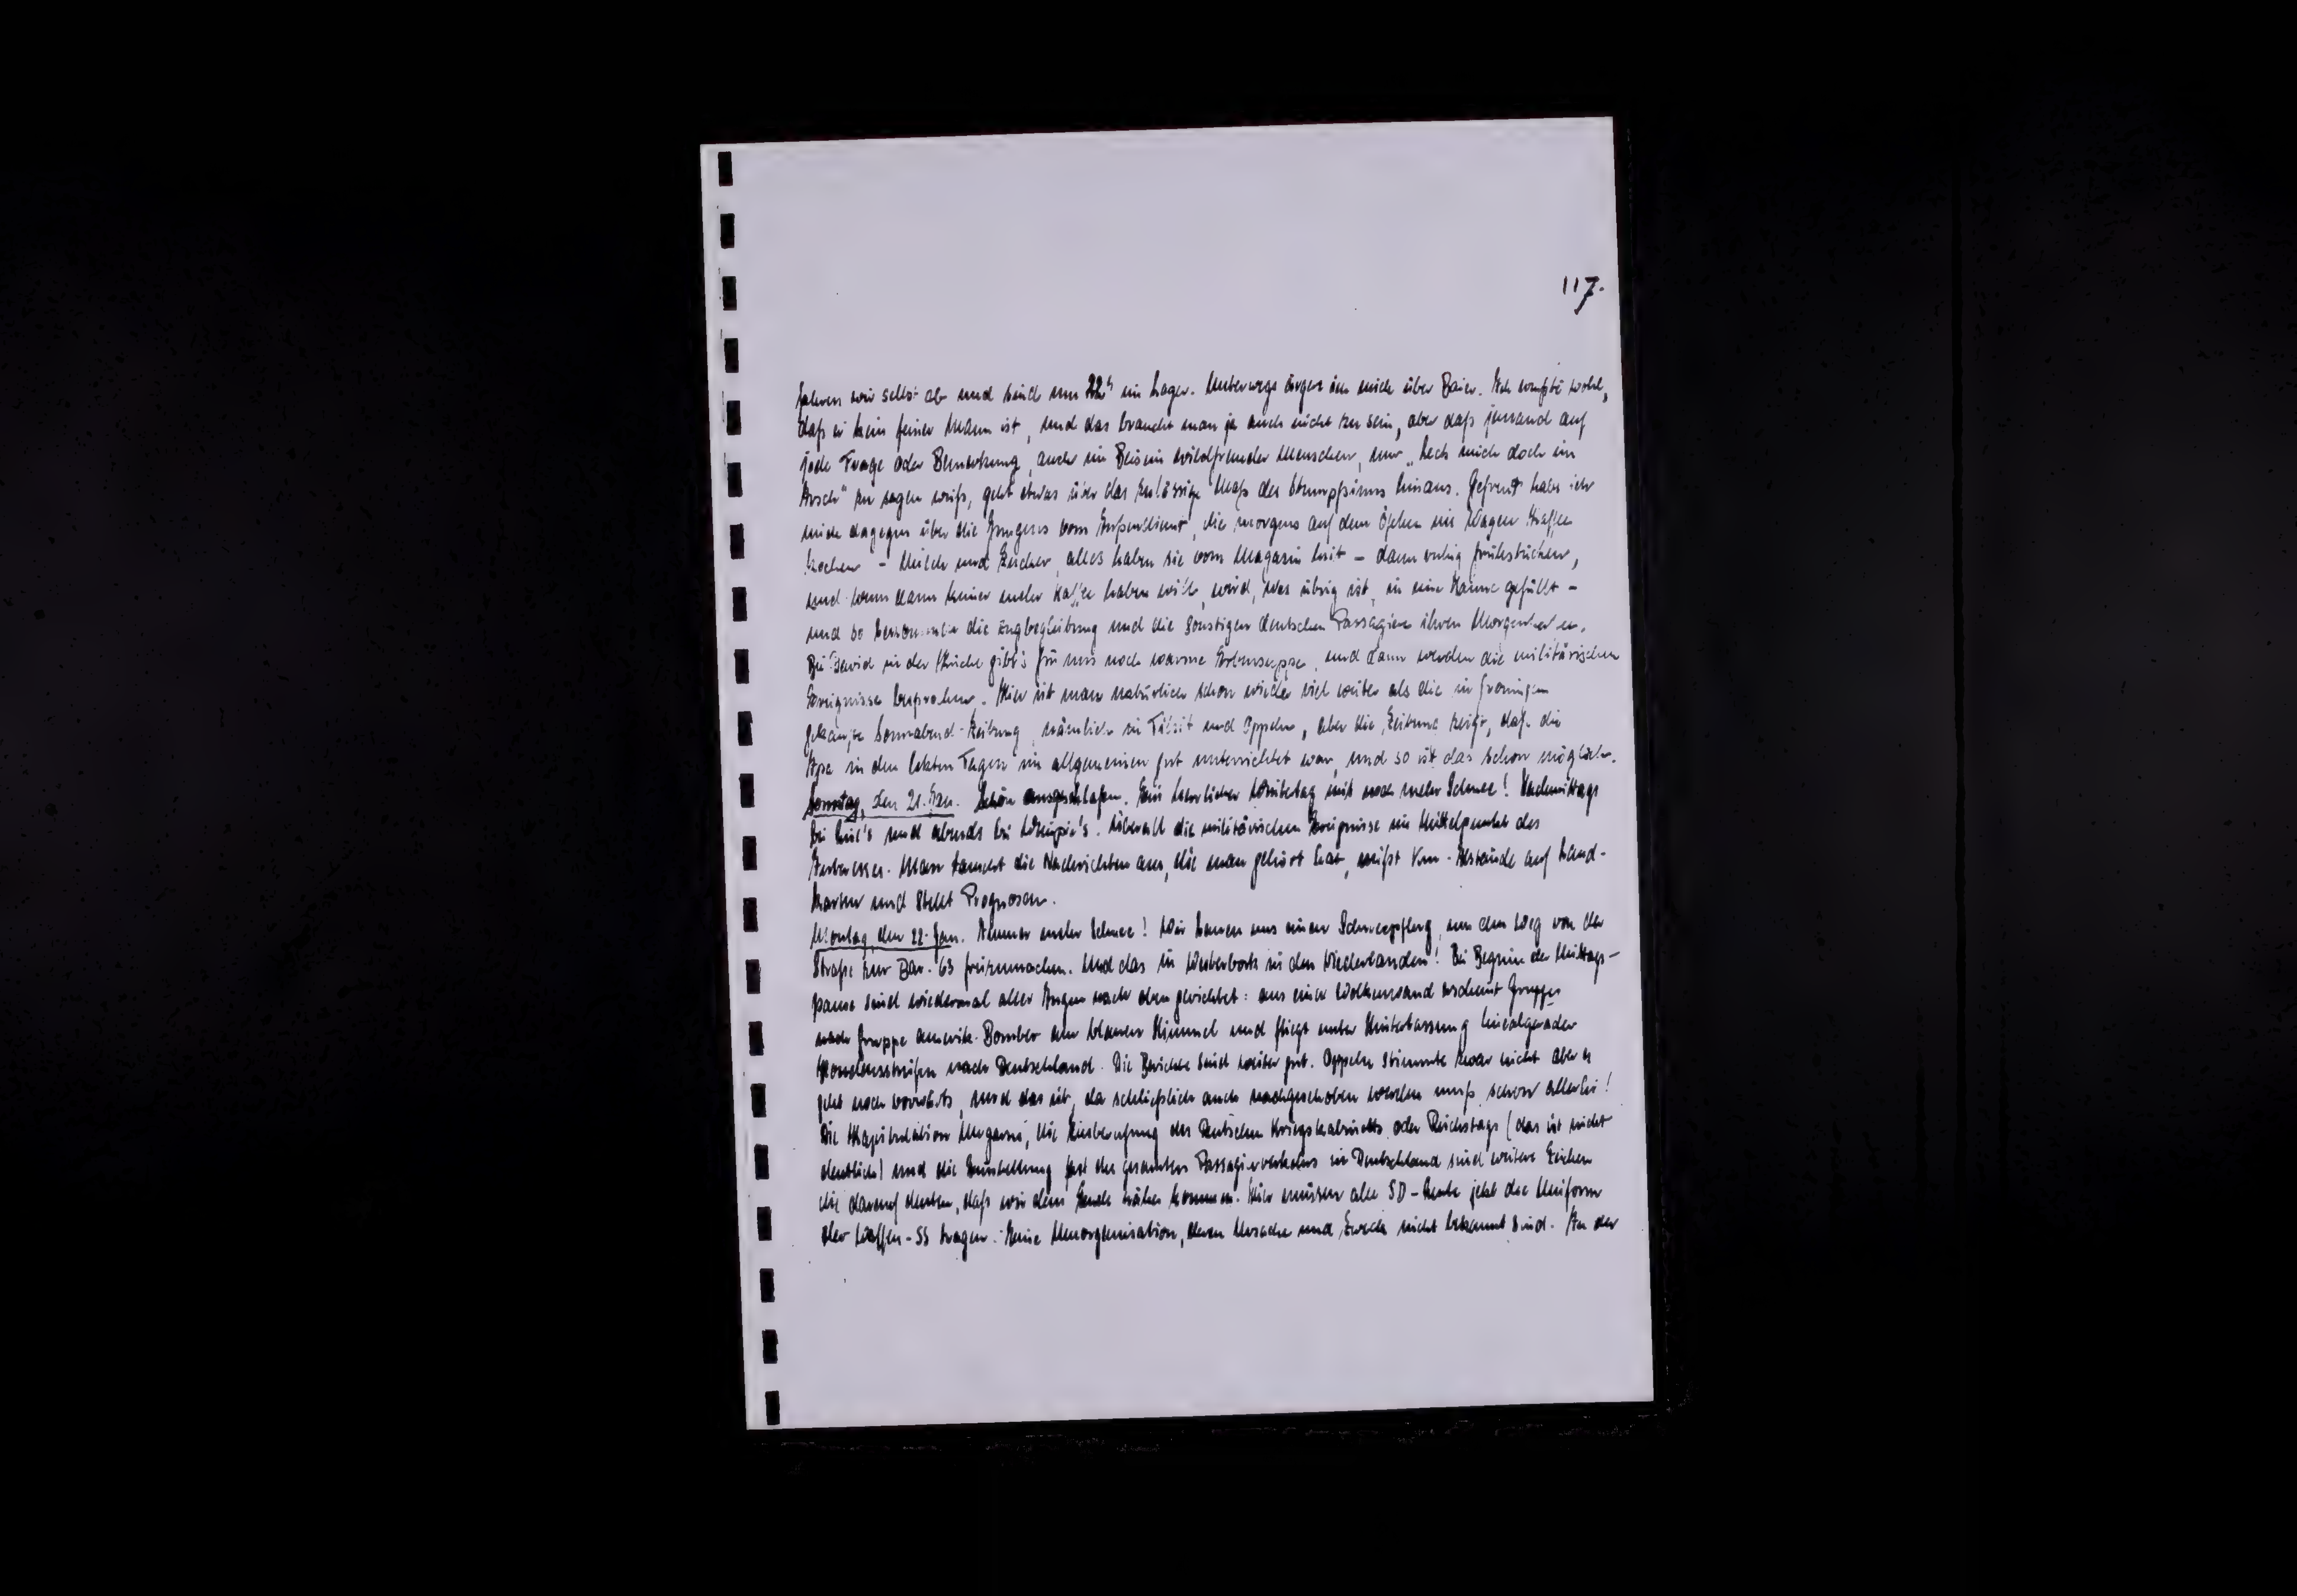 117.
fahren wir selbst ab und sind um 22h im Lager. Unterwegs ärgere ich mich über Baier. Ich wußte wohl,
daß er kein feiner Mann ist, und das braucht man ja auch nicht zu sein, aber daß jemand auf
jede Frage oder Bemerkung, auch im Beisein wildfremder Menschen, nur „Leck mich doch im
Arsch" zu sagen weiß, geht etwas über das zulässige Maß des Stumpfsinns hinaus. Gefreut habe ich
mich dagegen über die Jungens vom Außendienst, die morgens auf dem Öfchen im Wagen Kaffee
kochen - Milch und Zucker, alles haben sie vom Magazin mit - dann ruhig frühstücken,
und wenn dann keiner mehr Kaffee haben will, wird, was übrig ist, in eine Kanne gefüllt -
und so die Zugbegleitung und die sonstigen deutschen Passagiere ihren
Bei David in der Küche gibt's für uns noch warme Erbsensuppe, und dann werden die militärischen
Ereignisse besprochen. Hier ist man natürlich schon wieder viel weiter als die in Groningen
gekaufte Sonnabend-Zeitung, nämlich in Tilsit und Oppeln, aber die Zeitung zeigt, daß die
in den letzten Tagen im allgemeinen gut unterrichtet war, und so ist das schon möglich.
Sonntag, den 21. Jan. Schön ausgeschlafen. Ein herrlicher Wintertag mit noch mehr Schnee! Nachmittags
bei und abends bei Überall die militärischen Ereignisse im Mittelpunkt des
Interesses. Man tauscht die Nachrichten aus, die man gehört hat, mißt Km-Abstände auf Land-
karten und stellt Prognosen.
Montag, den 22. Jan. Immer mehr Schnee! Wir bauen uns einen Schneepflug, um den Weg von der
Straße zur Bar. 63 freizumachen. Und das in Westerbork in den Niederlanden! Bei Beginn der Mittags-
pause sind wiedermal aller Augen nach oben gerichtet: aus einer Wolkenwand erscheint Gruppe
nach Gruppe amerik. Bomber am blauen Himmel und fliegt unter Hinterlassung linealgerader
Kondensstreifen nach Deutschland. Die Berichte sind weiter gut. Oppeln stimmte zwar nicht aber es
geht noch vorwärts, und das ist, da schließlich auch nachgeschoben werden muß, schon allerlei!
Die Kapitulation Ungarns, die Einberufung des Deutschen Kriegskabinetts oder Reichstags (das ist nicht
deutlich) und die Einstellung fast des gesamten Passagierverkehrs in Deutschland sind weitere Zeichen
die darauf deuten, daß wir dem Ende näher kommen. Hier müssen alle SD-Leute jetzt die Uniform
der Waffen-SS tragen. Eine Umorganisation, deren Ursache und Zweck nicht bekannt sind. An der